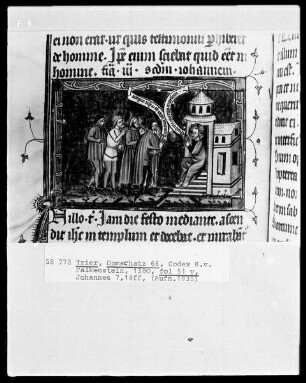 ei non erat ut quis testimoniu phibet
de homine. Ipe enim sciebat quid eet in
homine. fia iii scdm iohannem
Illo t. Iam die festo mediante. ascen
dit ihc in templum et docebat. et mirabat
58 772 Trier, Domschatz 66, Codex K.v.
Falkenstein, 1380, fol 51 v,
Johannes 7,14ff, (Aufn.1935)